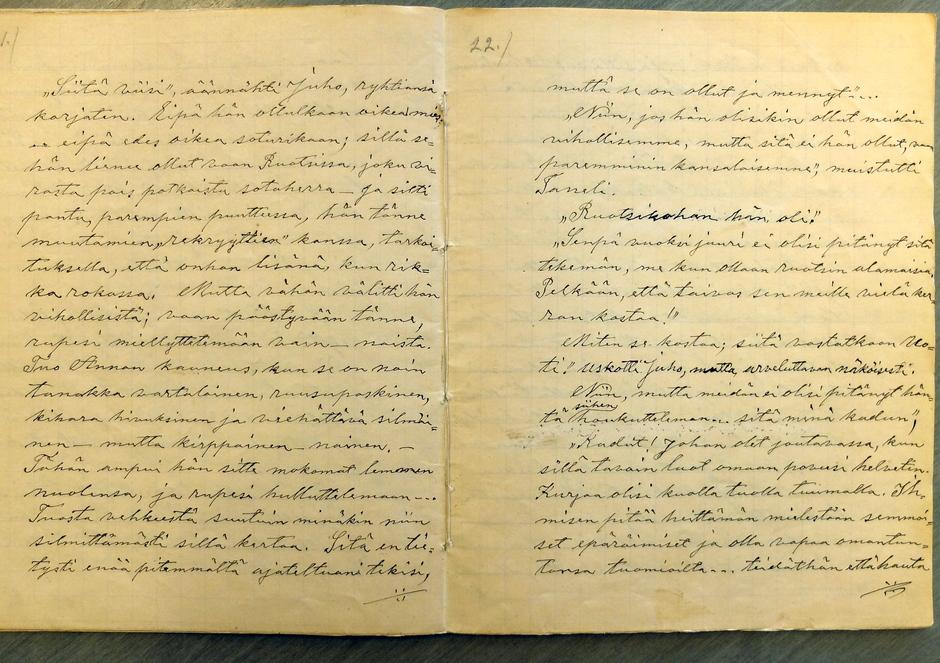 1.)
„Siitä viisi", äännähti Juho, ryhtiänsä
korjaten. Eipä hän ollutkaan oikea mies,
eipä edes oikea soturikaan; sillä se-
hän lienee ollut vaan Ruotsissa, joku vi-
rasta pois potkaistu sotaherra — ja sitti
pantu, parempien puuttuessa, hän tänne
muutamien „rekryyttien" kanssa, tarkoi-
tuksella, että onhan lisänä, kun rik-
ka rokassa. Mutta vähän välitti hän
vihollisistä; vaan päästyvään tänne,
rupesi miellyttelemään vain — naista.
Tuo Annan kauneus, kun se on noin
tanakka vartaloinen, ruusuposkinen,
kihara hiuksinen ja viehättävä silmäi-
nen — mutta kirppainen — nainen. —
Tähän ampui hän sitte mokomat lemmen
nuolensa, ja rupesi hulluttelemaan ---
Tuosta vehkeestä suutuin minäkin niin
silmittömästi sillä kertaa. Sitä en tie-
tysti enää pitemmältä ajateltuani tekisi,
22.)
mutta se on ollut ja mennyt"...
„Niin, jos hän olisikin ollut meidän
vihollisemme, mutta sitä ei hän ollut, vaan
paremminin kansalaisemme", muistutti
Taneli.
„Ruotsikohan hän oli!"
„Senpä vuoksi juuri ei olisi pitänyt sitä
tekemän, me kun ollaan ruotsin alamaisia.
Pelkään, että taivas sen meille vielä ker-
ran kostaa!"
Miten se kostaa; siitä vastatkaan Uo-
ti!" uskotti Juho, mutta arveluttavan näköisesti.
Niin, mutta meidän ei olisi pitänyt hän-
tä siihen houkutteleman... sitä minä kadun",
„Kadut! Johan olet joutavassa, kun
sillä tavain luot omaan poveesi helvetin.
Kurjaa olisi kuolla tuolla tuimalla. Ih-
misen pitää heittämän mielestään semmoi-
set epäröimiset ja olla vapaa omantun-
tonsa tuomioilta... tiedäthän että hauta